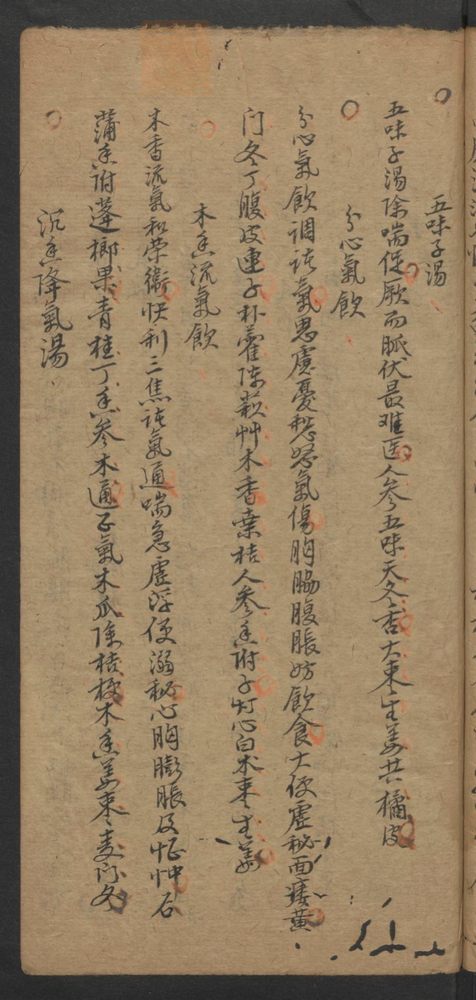 五味子湯
五味子湯除喘促厥而脈伏最难医人參五味天冬杏大棗生姜共橘皮
分心氣飲
分心氣飲調诸氣思慮憂愁怒氣傷胸脇腹脹妨飲食大便虛秘面痿黃
门冬丁腹皮連子朴藿陈蘇艸木香桑桔人參香附子灯心白术棗生姜
木香流氣飲
木香流氣和荣衛快利三焦诸氣通喘急虛浮便溺秘心胸膨脹及怔忡石
蒲香附蓬榔果青桂丁香參木通正氣木瓜陈桔梗木香姜棗麦门冬
沉香降氣湯